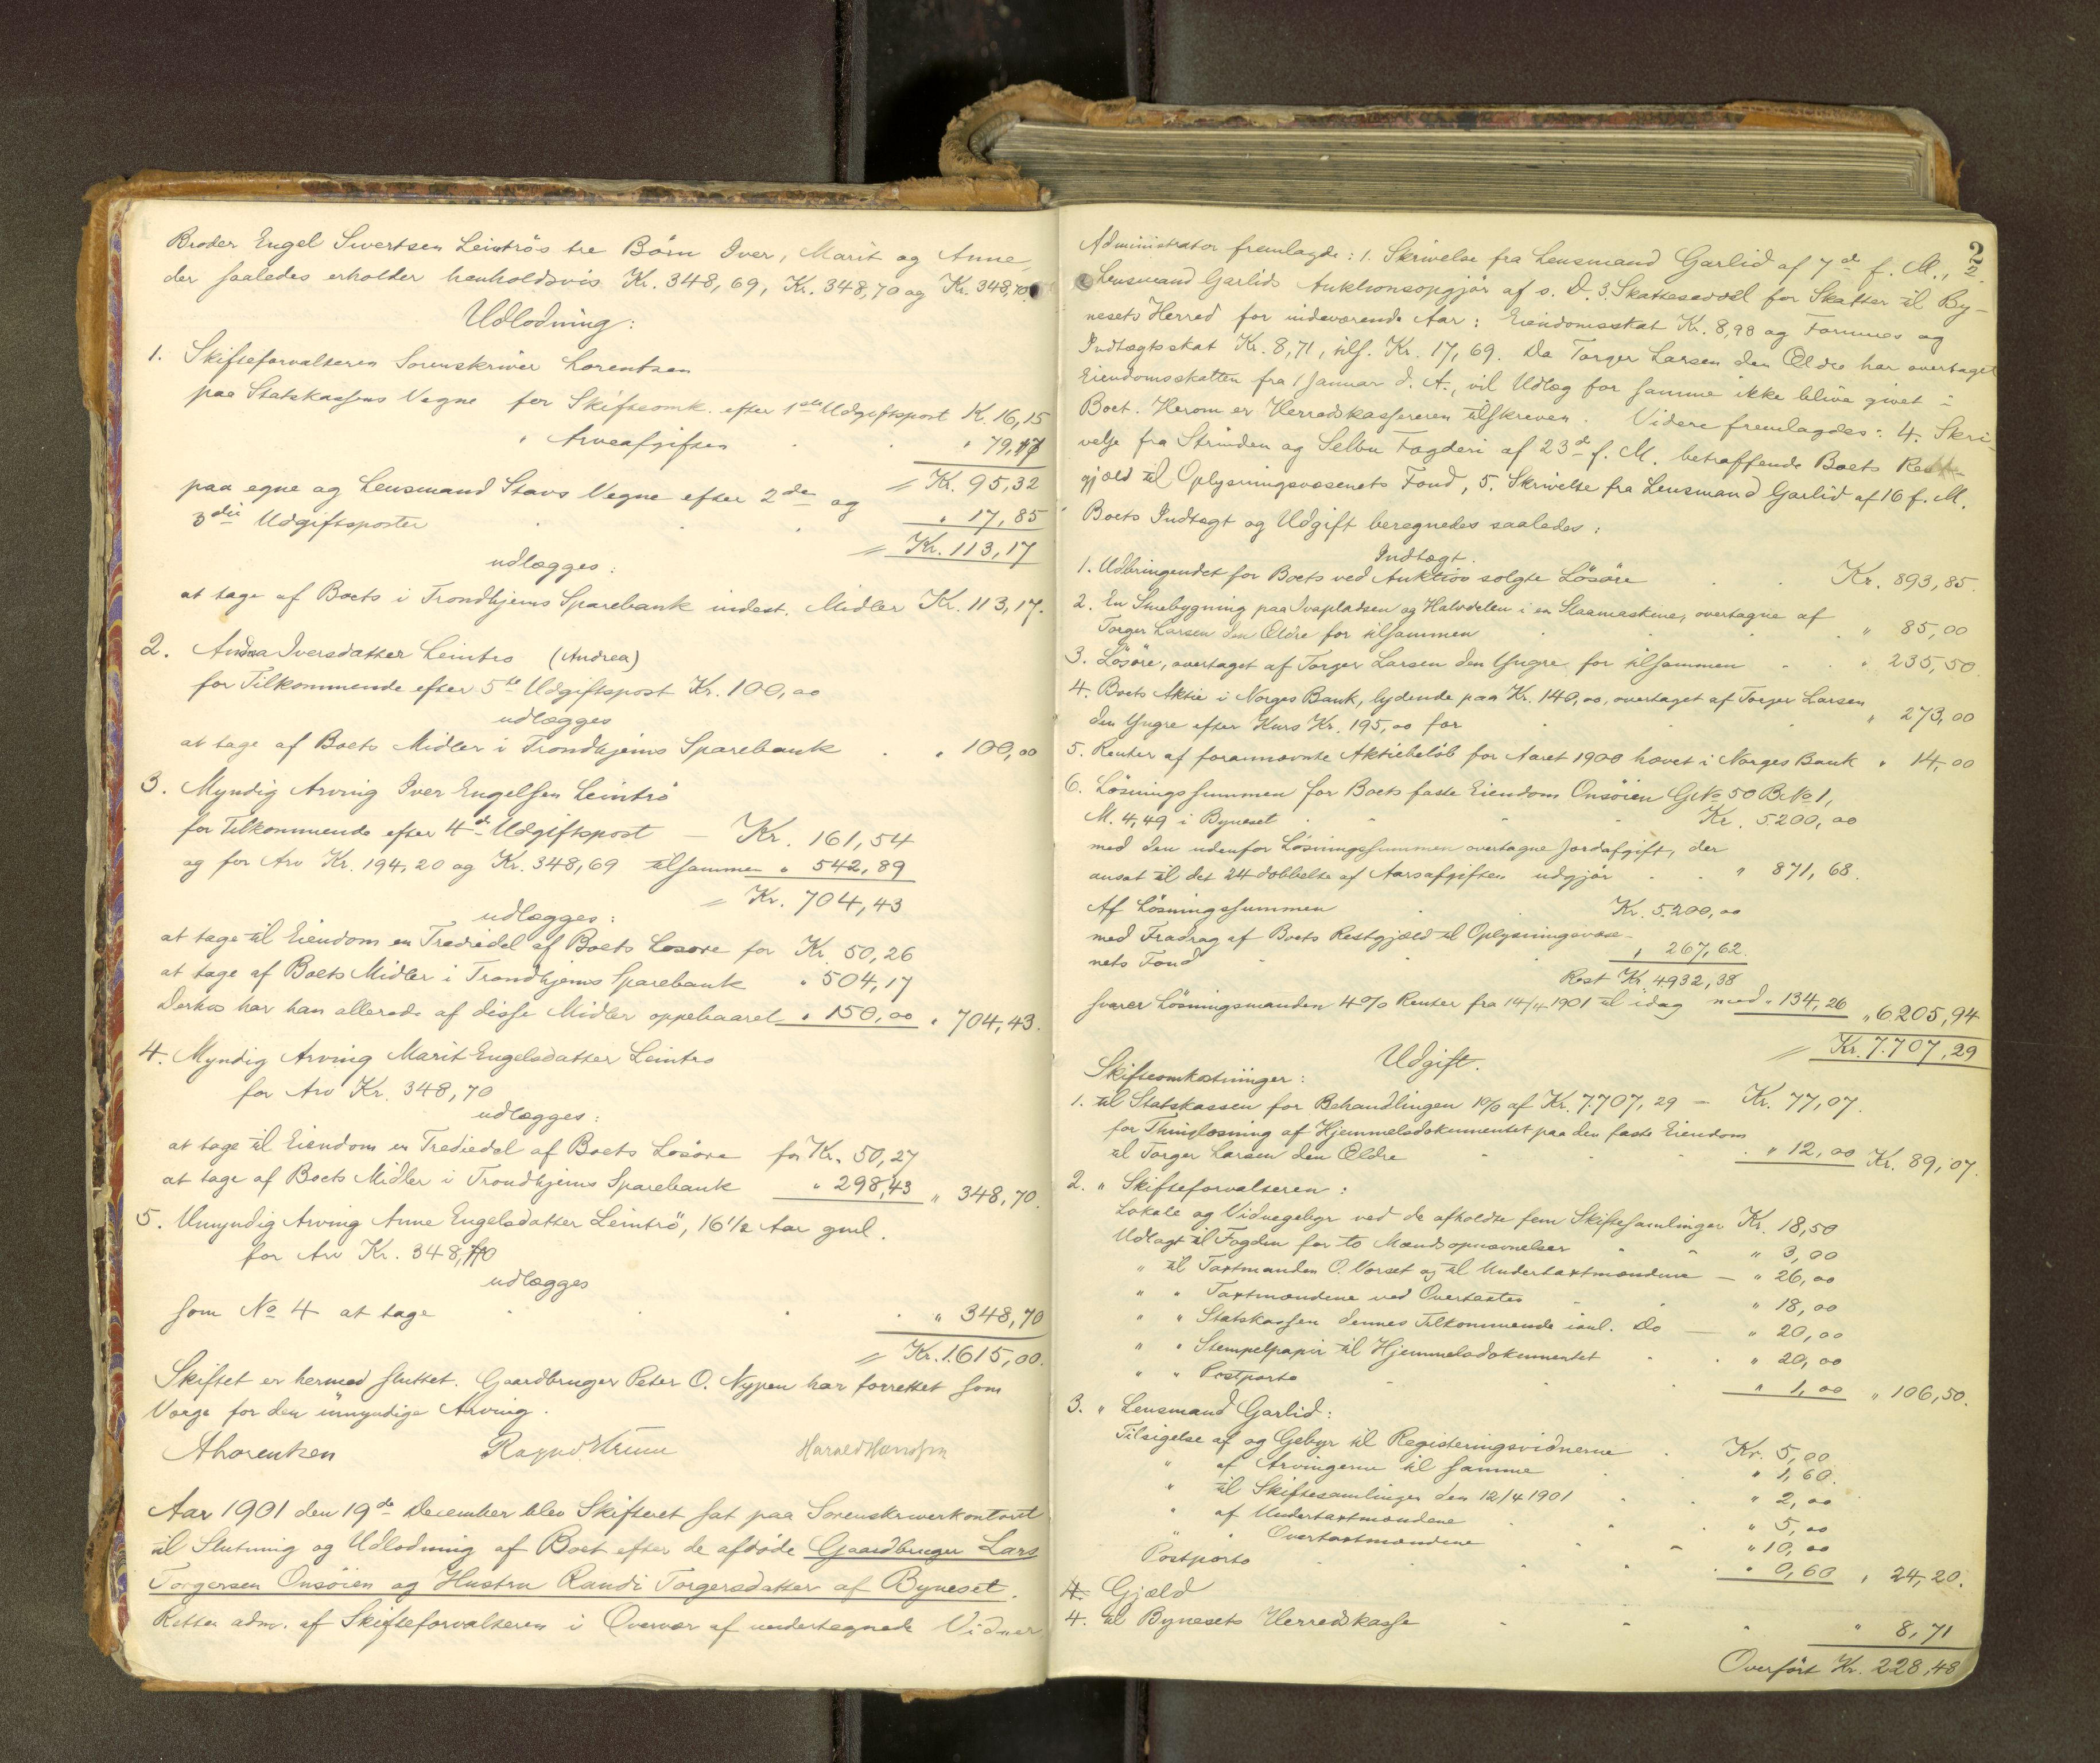 Broder Engel Sivertsen Leintrös tre Börn Iver, Marit og Anne,
der saaledes erholder henholdsvis Kr. 348,69, Kr. 348,70 og Kr. 348,70.
Udlodning:
1. Skifteforvalteren Sorenskriver Lorentzen
paa Statskassens Vegne for Skifteomk. efter 1ste Udgiftspost K. 16,15
" Arveafgiften " 79,17
= Kr. 95,32
paa egne og Lensmand Stavs Vegne efter 2den og
3die Udgiftsposter " 17,85
= Kr. 113,17
udlægges:
at tage af Boets i Trondhjems Sparebank indest. Midler Kr. 113,17.
2. Andrea Iversdatter Leintrö (Andrea)
for Tilkommende efter 5te Udgiftspost Kr. 100,00
udlægges
at tage af Boets Midler i Trondhjems Sparebank " 100,00
3. Myndig Arving Iver Engelsen Leintrö
for Tilkommende efter 4de Udgiftspost — Kr. 161,54
og for Arv Kr. 194,20 og Kr. 348,69 tilsammen " 542,89
= Kr. 704,43
udlægges:
at tage til Eiendom en Trediedel af Boets Løsøre for Kr. 50,26
at tage af Boets Midler i Trondhjems Sparebank " 504,17
Derhos har han allerede af disse Midler oppebaaret " 150,00 " 704,43.
4. Myndig Arving Marit Engelsdatter Leintrö
for Arv Kr. 348,70
udlægges:
at tage til Eiendom en Trediedel af Boets Løsøre for Kr. 50,27
at tage af Boets Midler i Trondhjems Sparebank " 298,43 " 348,70.
5. Umyndig Arving Anne Engelsdatter Leintrö, 16 1/2 Aar gml.
for Arv Kr. 348,70
udlægges
som No 4 at tage " 348,70
= Kr. 1.615,00.
Skiftet er hermed sluttet. Gaardbruger Peter O. Nypen har forrettet som
Værge for den umyndige Arving.
ALorentzen Harald Hanssen
Aar 1901 den 19de December blev Skifteret sat paa Sorenskriverkontoret
til Slutning og Udlodning af Boet efter de afdøde Gaardbruger Lars
Torgersen Onsöien og Hustru Randi Torgersdatter af Byneset.
Retten adm. af Skifteforvalteren i Overvær af undertegnede Vidner
2
Administrator fremlagde: 1. Skrivelse fra Lensmand Garlid af 7de f. M., 2.
Lensmand Garlids Auktionsopgjör af s. D. 3. Skatteseddel for Skatter til By-
nesets Herred for indeværende Aar: Eiendomsskat Kr. 8,98 og Formues og
Indtægtsskat Kr. 8,71, tils. Kr. 17,69. Da Torger Larsen den Ældre har overtaget
Eiendomsskatten fra 1 Januar d. A., vil Udlæg for samme ikke blive givet i
Boet. Herom er Herredskassereren tilskreven. Videre fremlagdes: 4. Skri-
velse fra Strinden og Selbu Fogderi af 23de f. M. betræffende Boets Rest-
gjæld til Oplysningsvæsenets Fond, 5. Skrivelse fra Lensmand Garlid af 16 f. M.
Boets Indtægt og Udgift beregnedes saaledes:
Indtægt.
1. Udbringendet for Boets ved Auktion solgte Lösöre Kr. 893,85.
2. En Smebygning paa Ivapladsen og Halvdelen i en Slaamaskine, overtagne af
Torger Larsen den Ældre for tilsammen " 85,00
3. Lösöre, overtaget af Torger Larsen den Yngre for tilsammen " 235,50.
4. Boets Aktie i Norges Bank, lydende paa Kr. 140,00, overtaget af Torger Larsen
den Yngre efter Kurs Kr. 195,00 for " 273,00
5. Renter af forannævnte Aktiebeløb for Aaret 1900 hævet i Norges Bank " 14,00
6. Lösningssummen for Boets faste Eiendom Onsöien GNo 50 BNo 1,
M. 4,49 i Byneset Kr. 5.200,00
med den udenfor Lösningssummen overtagne Jordafgift, der
ansat til det 24 dobbelte af Aarsafgiften udgjör " 871,68.
Af Lösningssummen Kr. 5.200,00
med Fradrag af Boets Restgjæld til Oplysningsvæse-
nets Fond " 267,62.
Rest Kr. 4932,38
svarer Lösningsmanden 4% Renter fra 14/4 1901 til idag med " 134,26 " 6205,94
= Kr. 7.707,29
Udgift.
Skifteomkostninger:
1. til Statskassen for Behandlingen 1% af Kr. 7.707,29 — Kr. 77,07.
for Thinglæsning af Hjemmelsdokumentet paa den faste Eiendom
til Torger Larsen den Ældre " 12,00 Kr. 89,07.
2. " Skifteforvalteren:
Lokale og Vidnegebyr ved de afholdte fem Skiftesamlinger Kr. 18,50
Udlagt til Fogden for to Mændsopnævnelser " 3,00
" til Taxtmanden O. Vorset og til Undertaxtmændene — " 26,00
" " Taxtmændene ved Overtaxten " 18,00
" " Statskassen dennes Tilkommende ianl. Do — " 20,00
" " Stempelpapir til Hjemmelsdokumentet " 20,00
" " Postporto " 1,00 " 106,50.
3. " Lensmand Garlid:
Tilsigelse af og Gebyr til Registreringsvidnerne Kr. 5,00
" af Arvingerne til samme " 1,60.
" til Skiftesamlingen den 12/4 1901 " 2,00
" af Undertaxtmændene " 5,00
" " Overtaxtmændene " 10,00
Postporto " 0,60 " 24,20.
4. Gjæld
4. til Bynesets Herredskasse " 8,71
Overført Kr. 228,48